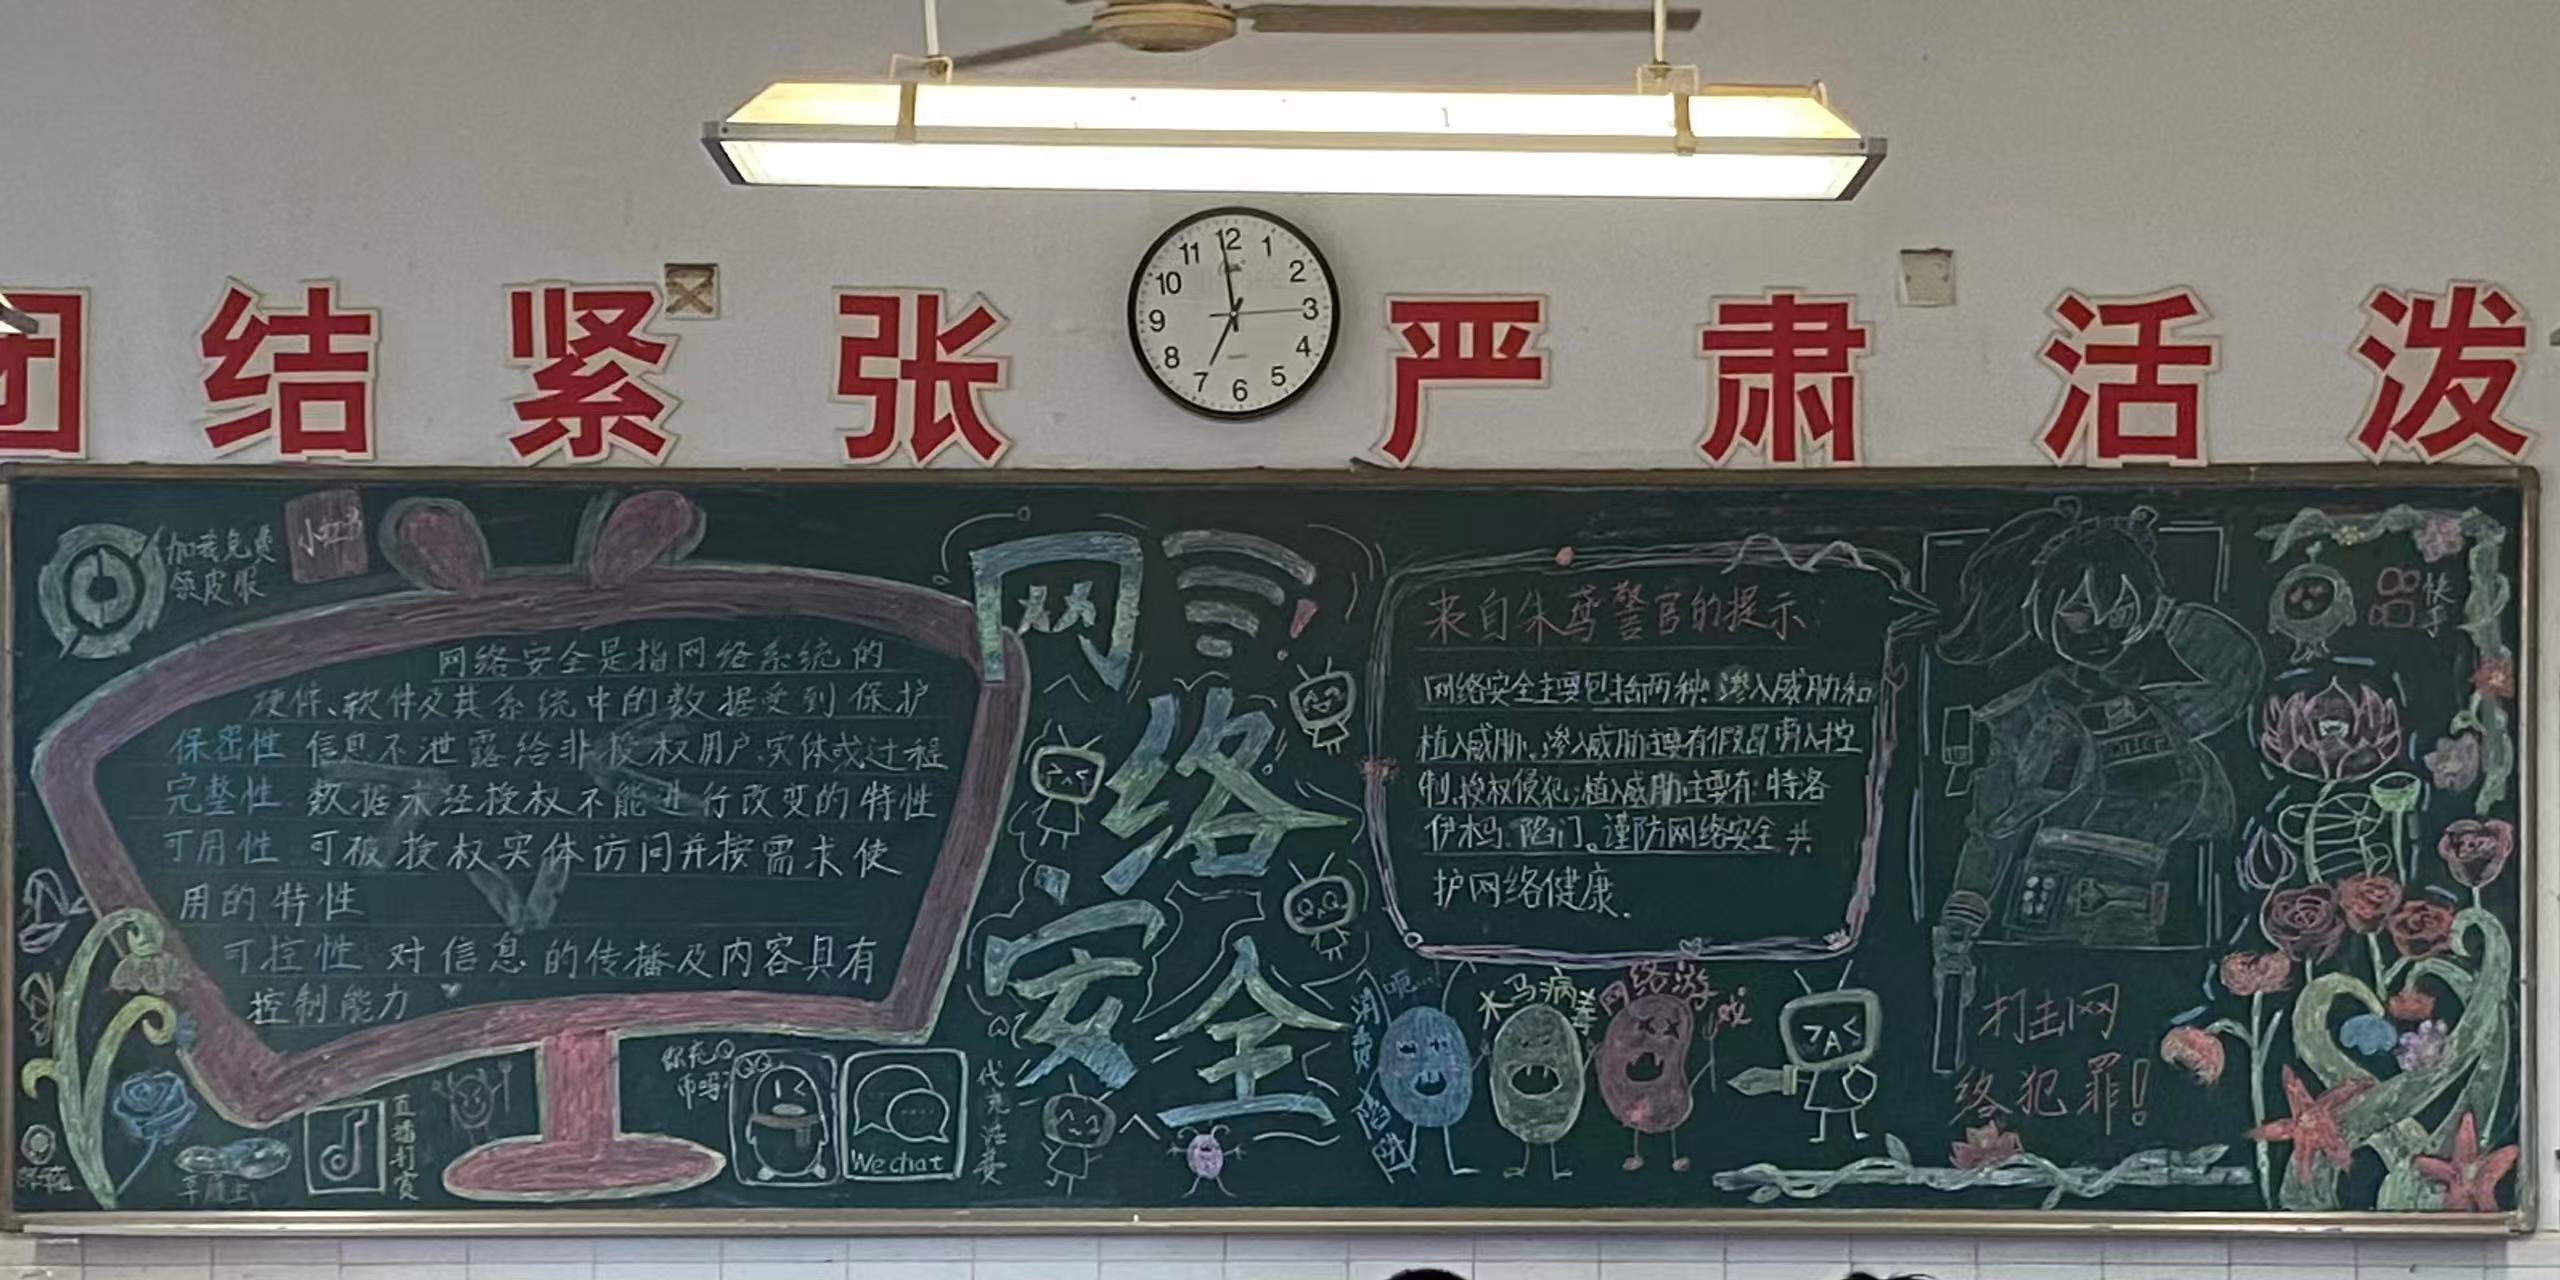 团结紧张 严肃活泼
12
1
2
3
4
5
6
7
8
9
10
11
加我免费
领皮肤
小红书
网络安全是指网络系统的
硬件、软件及其系统中的数据受到保护
保密性 信息不泄露给非授权用户.实体或过程
完整性 数据未经授权不能进行改变的特性
可用性 可被授权实体访问并按需求使
用的特性
可控性 对信息的传播及内容具有
控制能力
直播打赏
你充Q
币吗?
QQ
We chat
代充话费
网络安全
来自朱鸢警官的提示
网络安全主要包括两种:渗入威胁和
植入威胁.渗入威胁主要有假冒.旁入控
制.授权侵犯;植入威胁主要有:特洛
伊木马.陷门。谨防网络安全 共
护网络健康.
消费陷阱
呃...
木马病毒
网络游戏
快手
打击网
络犯罪!